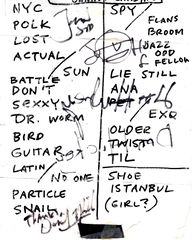 NYC
POLK
LOST
ACTUAL
SUN
BATTLE
DON'T
SEXXY
DR. WORM
BIRD
GUITAR
LATIN
NO ONE
PARTICLE
SNAIL
SPY
FLANS
BROOM
JAZZ
ODD
FELLOW
LIE STILL
ANA
EXQ
OLDER
TWIST
TIL
SHOE
ISTANBUL
(GIRL?)
THANKS